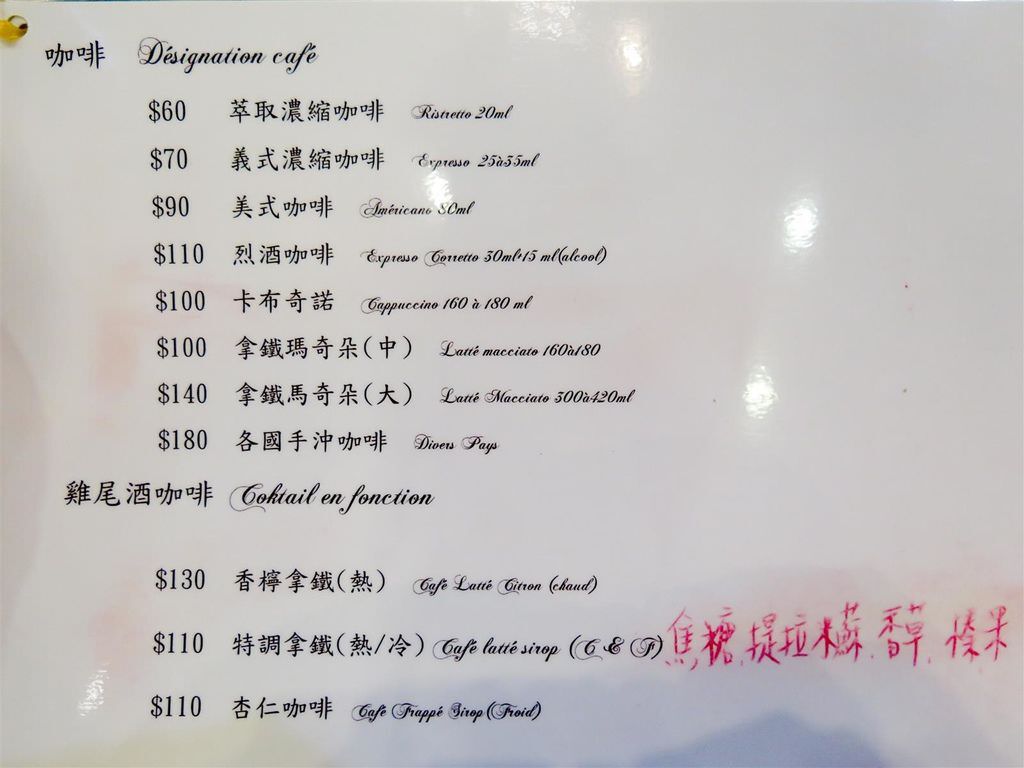 咖啡 Désignation café
$60 萃取濃縮咖啡 Ristretto 20ml
$70 義式濃縮咖啡 Expresso 25à35ml
$90 美式咖啡 Américano 80ml
$110 烈酒咖啡 Expresso Corretto 30ml+15 ml(alcool)
$100 卡布奇諾 Cappuccino 160 à 180 ml
$100 拿鐵瑪奇朵(中) Latté macciato 160à180
$140 拿鐵馬奇朵(大) Latté Macciato 300à420ml
$180 各國手沖咖啡 Divers Pays
雞尾酒咖啡 Coktail en fonction
$130 香檸拿鐵(熱) Café Latté Citron (chaud)
$110 特調拿鐵(熱/冷) Café latté sirop (C & F) 焦糖.提拉米蘇.香草.榛果
$110 杏仁咖啡 Café Frappé Sirop(Froid)